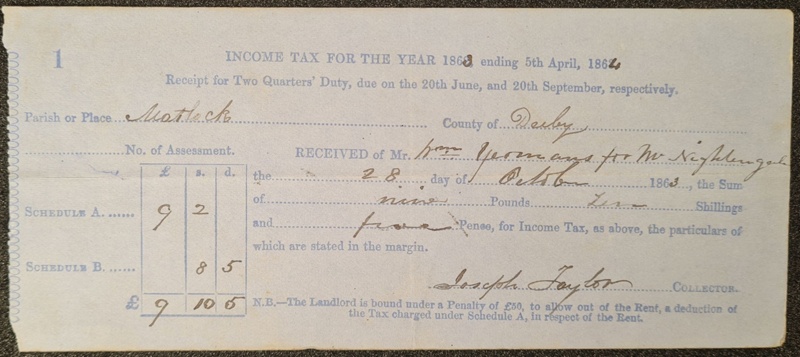 1
INCOME TAX FOR THE YEAR 1863 ending 5th April, 1864
Receipt for Two Quarters' Duty, due on the 20th June, and 20th September, respectively.
Parish or Place Matlock County of Derby
No. of Assessment. RECEIVED of Mr. Wm Yeomans for Mr Nightengale
£ s. d. the 28 day of Octobr 1863, the Sum
of nine Pounds Ten Shillings
SCHEDULE A. 9 2
and five Pence, for Income Tax, as above, the particulars of
which are stated in the margin.
SCHEDULE B. 8 5
Joseph Taylor COLLECTOR.
£ 9 10 5
N.B.—The Landlord is bound under a Penalty of £50, to allow out of the Rent, a deduction of
the Tax charged under Schedule A, in respect of the Rent.